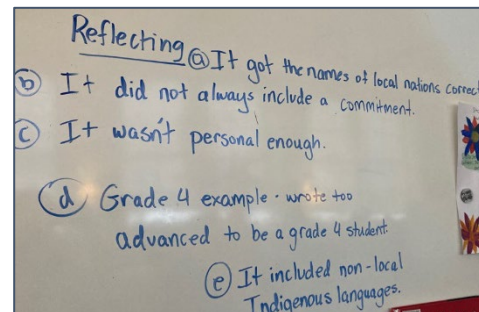 Reflecting ⓐ It got the names of local nations correct
ⓑ It did not always include a commitment.
ⓒ It wasn't personal enough.
ⓓ Grade 4 example · wrote too
advanced to be a grade 4 student.
ⓔ It included non-local
Indigenous languages.